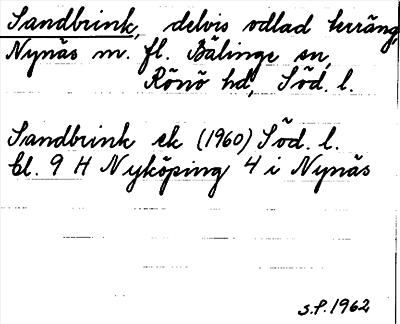 Sandbrink, delvis odlad terräng,
Nynäs m. fl. Bälinge sn,
Rönö hd, Söd. l.
Sandbrink ek (1960) Söd. l.
bl. 9 H Nyköping 4 i Nynäs
S.P. 1962